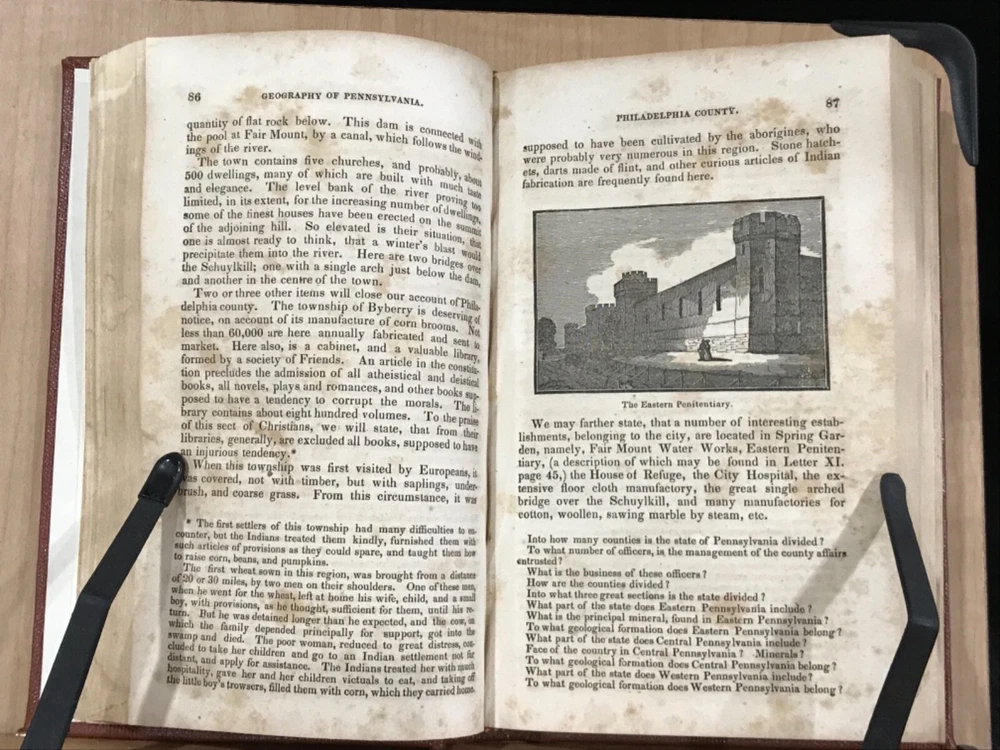 86
GEOGRAPHY OF PENNSYLVANIA.
quantity of flat rock below. This dam is connected with
the pool at Fair Mount, by a canal, which follows the wind-
ings of the river.
The town contains five churches, and probably, about
500 dwellings, many of which are built with much taste
and elegance. The level bank of the river proving too
limited, in its extent, for the increasing number of dwellings,
some of the finest houses have been erected on the summit
of the adjoining hill. So elevated is their situation, that
one is almost ready to think, that a winter's blast would
precipitate them into the river. Here are two bridges over
the Schuylkill; one with a single arch just below the dam,
and another in the centre of the town.
Two or three other items will close our account of Phila-
delphia county. The township of Byberry is deserving of
notice, on account of its manufacture of corn brooms. Not
less than 60,000 are here annually fabricated and sent to
market. Here also, is a cabinet, and a valuable library,
formed by a society of Friends. An article in the constitu-
tion precludes the admission of all atheistical and deistical
books, all novels, plays and romances, and other books sup-
posed to have a tendency to corrupt the morals. The li-
brary contains about eight hundred volumes. To the praise
of this sect of Christians, we will state, that from their
libraries, generally, are excluded all books, supposed to have
an injurious tendency.*
When this township was first visited by Europeans, it
was covered, not with timber, but with saplings, under-
brush, and coarse grass. From this circumstance, it was
* The first settlers of this township had many difficulties to en-
counter, but the Indians treated them kindly, furnished them with
such articles of provisions as they could spare, and taught them how
to raise corn, beans, and pumpkins.
The first wheat sown in this region, was brought from a distance
of 20 or 30 miles, by two men on their shoulders. One of these men,
when he went for the wheat, left at home his wife, child, and a small
boy, with provisions, as he thought, sufficient for them, until his re-
turn. But he was detained longer than he expected, and the cow, on
which the family depended principally for support, got into the
swamp and died. The poor woman, reduced to great distress, con-
cluded to take her children and go to an Indian settlement not far
distant, and apply for assistance. The Indians treated her with much
hospitality, gave her and her children victuals to eat, and taking off
the little boy's trowsers, filled them with corn, which they carried home.
PHILADELPHIA COUNTY.
87
supposed to have been cultivated by the aborigines, who
were probably very numerous in this region. Stone hatch-
ets, darts made of flint, and other curious articles of Indian
fabrication are frequently found here.
The Eastern Penitentiary.
We may farther state, that a number of interesting estab-
lishments, belonging to the city, are located in Spring Gar-
den, namely, Fair Mount Water Works, Eastern Peniten-
tiary, (a description of which may be found in Letter XI.
page 45,) the House of Refuge, the City Hospital, the ex-
tensive floor cloth manufactory, the great single arched
bridge over the Schuylkill, and many manufactories for
cotton, woollen, sawing marble by steam, etc.
Into how many counties is the state of Pennsylvania divided?
To what number of officers, is the management of the county affairs
entrusted?
What is the business of these officers?
How are the counties divided?
Into what three great sections is the state divided?
What part of the state does Eastern Pennsylvania include?
What is the principal mineral, found in Eastern Pennsylvania?
To what geological formation does Eastern Pennsylvania belong?
What part of the state does Central Pennsylvania include?
Face of the country in Central Pennsylvania? Minerals?
To what geological formation does Central Pennsylvania belong?
What part of the state does Western Pennsylvania include?
To what geological formation does Western Pennsylvania belong?